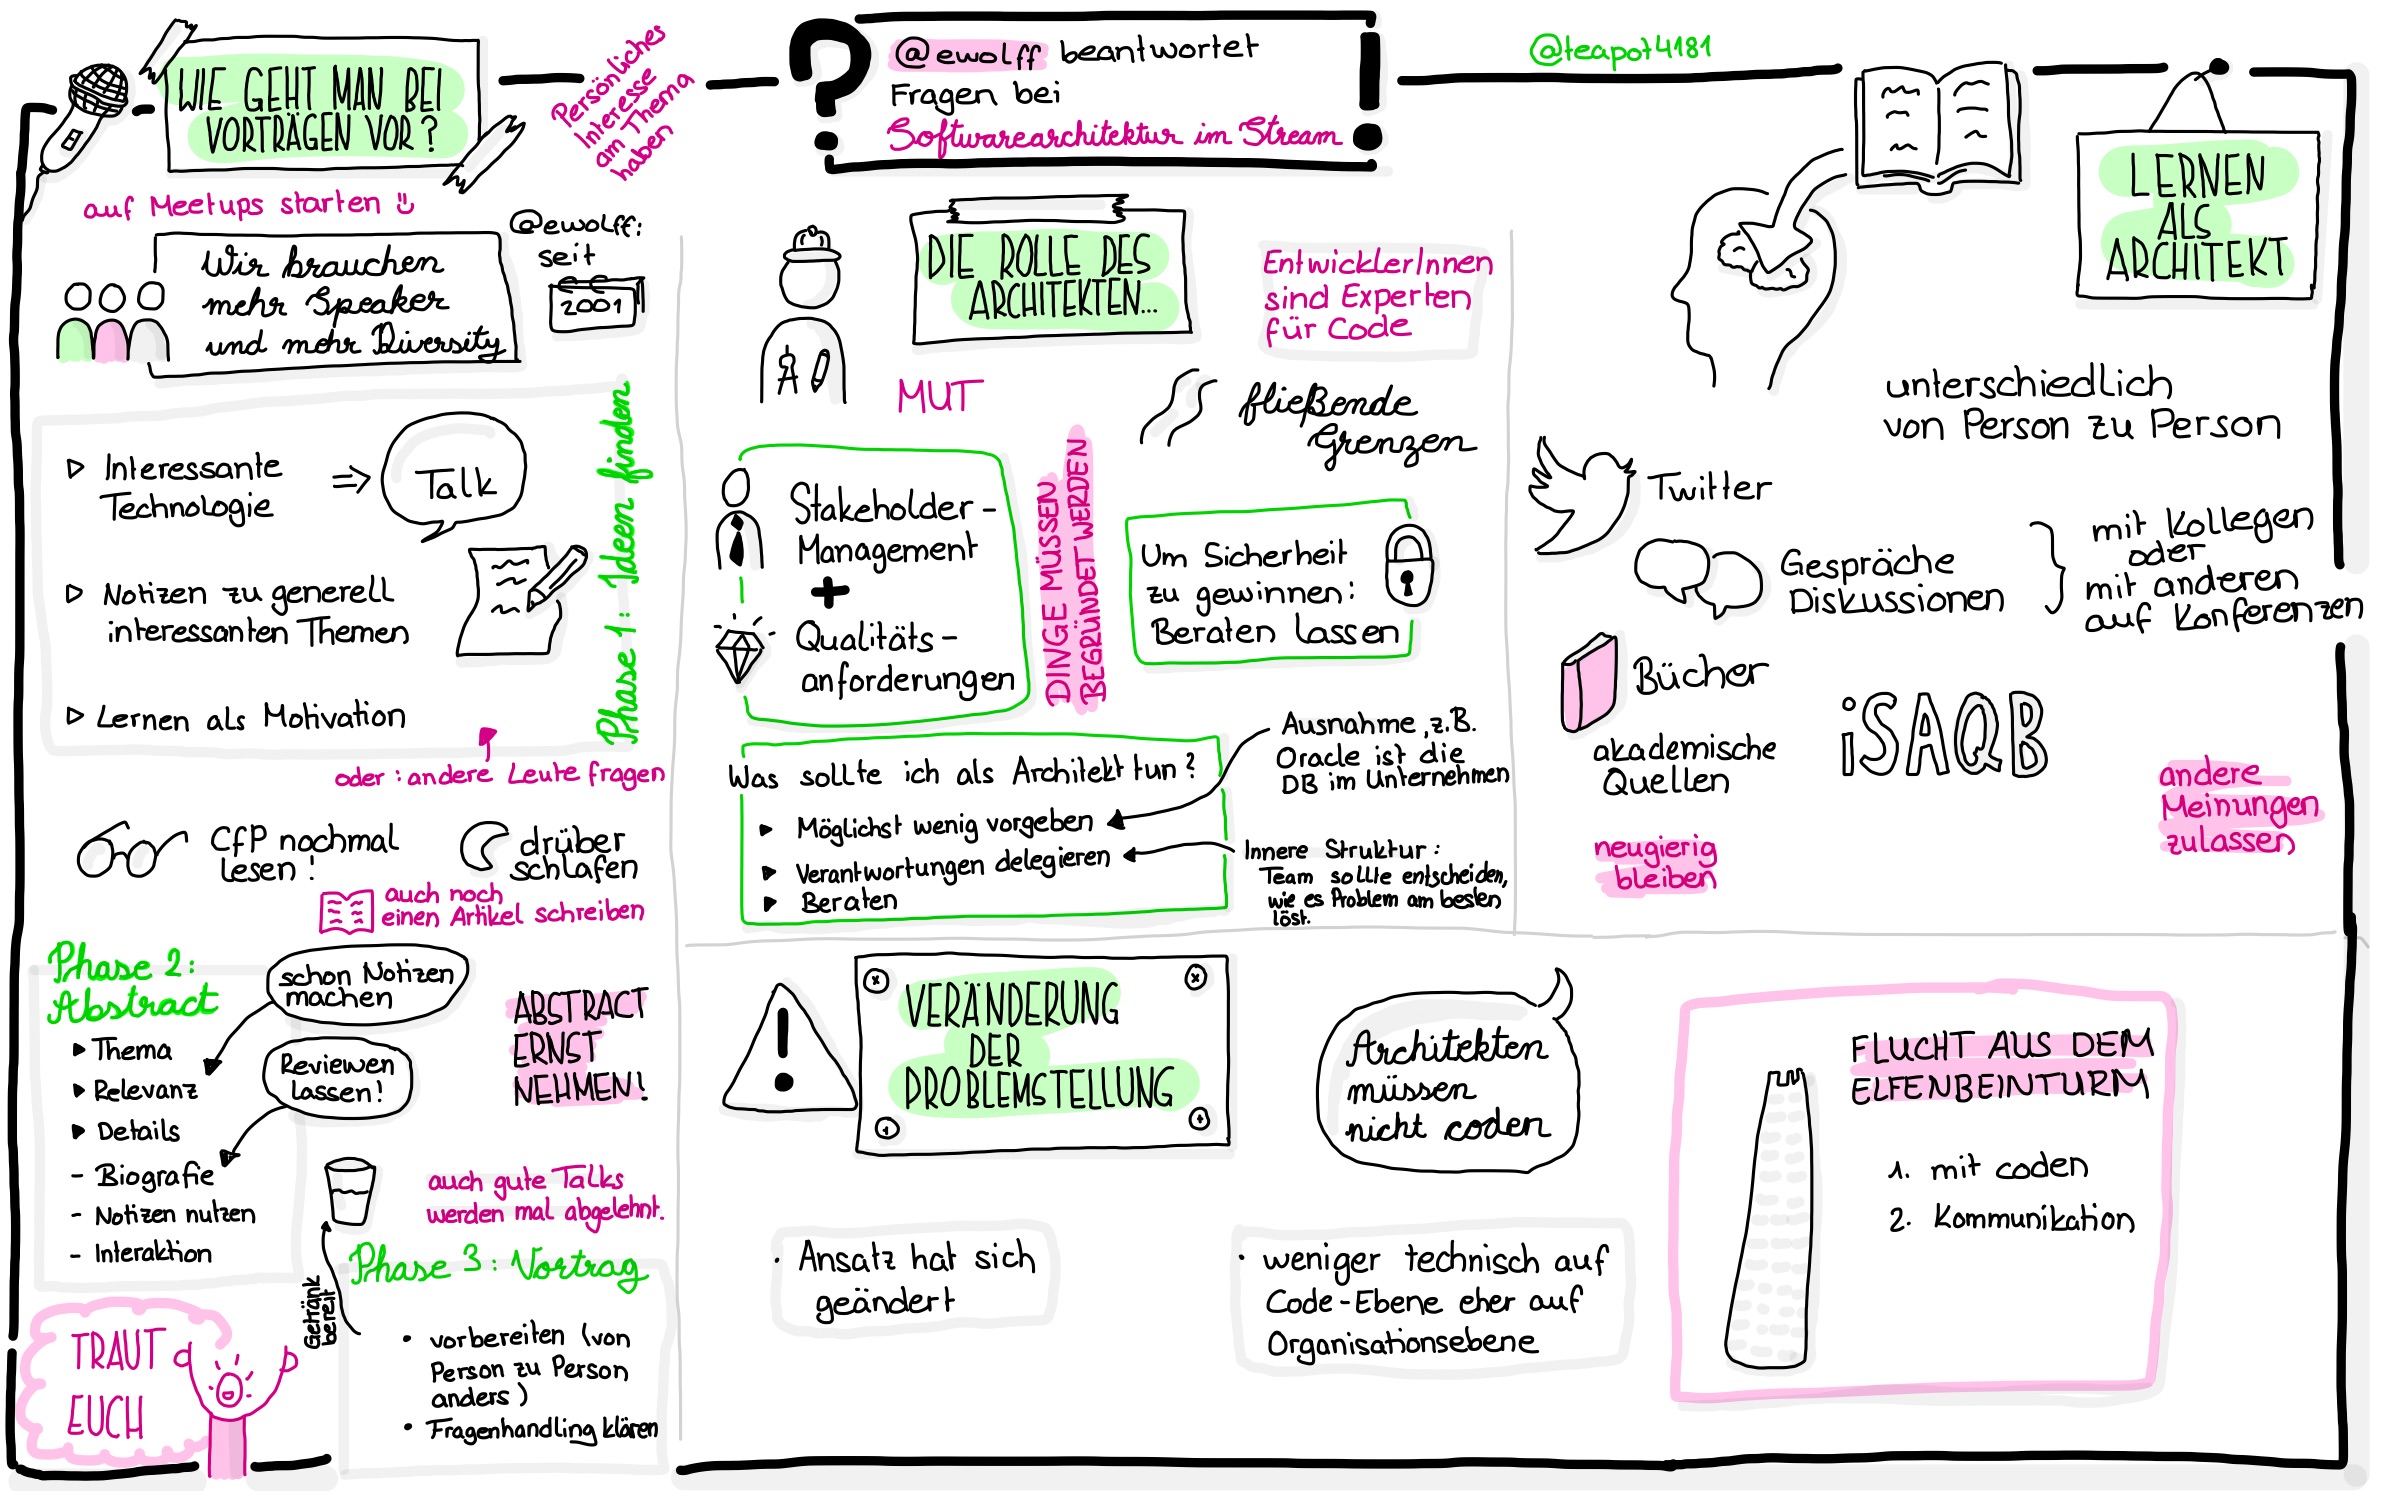 @ewolff beantwortet
Fragen bei
Softwarearchitektur im Stream
@teapot4181
WIE GEHT MAN BEI
VORTRÄGEN VOR?
Persönliches
Interesse
am Thema
haben
auf Meetups starten
@ewolff:
seit
2001
Wir brauchen
mehr Speaker
und mehr Diversity
Phase 1: Ideen finden
Interessante
Technologie
⇒
Talk
Notizen zu generell
interessanten Themen
Lernen als Motivation
oder: andere Leute fragen
CfP nochmal
lesen!
drüber
schlafen
auch noch
einen Artikel schreiben
Phase 2:
Abstract
schon Notizen
machen
Reviewen
lassen!
Thema
Relevanz
Details
- Biografie
- Notizen nutzen
- Interaktion
ABSTRACT
ERNST
NEHMEN!
auch gute Talks
werden mal abgelehnt.
Getränk
bereit
Phase 3: Vortrag
• vorbereiten (von
Person zu Person
anders)
• Fragenhandling klären
TRAUT
EUCH
DIE ROLLE DES
ARCHITEKTEN...
EntwicklerInnen
sind Experten
für Code
MUT
fließende
Grenzen
Stakeholder-
Management
+
Qualitäts-
anforderungen
DINGE MÜSSEN
BEGRÜNDET WERDEN
Um Sicherheit
zu gewinnen:
Beraten lassen
Was sollte ich als Architekt tun?
Möglichst wenig vorgeben
Verantwortungen delegieren
Beraten
Ausnahme, z.B.
Oracle ist die
DB im Unternehmen
Innere Struktur:
Team sollte entscheiden,
wie es Problem am besten
löst.
LERNEN
ALS
ARCHITEKT
unterschiedlich
von Person zu Person
Twitter
Gespräche
Diskussionen
mit Kollegen
oder
mit anderen
auf Konferenzen
Bücher
akademische
Quellen
iSAQB
neugierig
bleiben
andere
Meinungen
zulassen
VERÄNDERUNG
DER
PROBLEMSTELLUNG
Architekten
müssen
nicht coden
• Ansatz hat sich
geändert
• weniger technisch auf
Code-Ebene eher auf
Organisationsebene
FLUCHT AUS DEM
ELFENBEINTURM
1. mit coden
2. Kommunikation